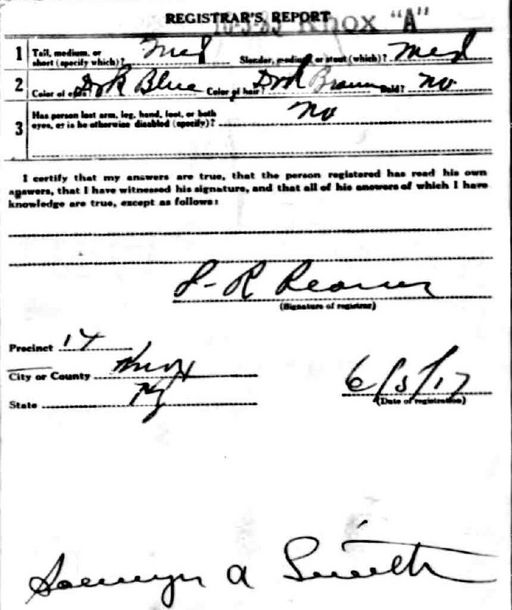 REGISTRAR'S REPORT
Knox "A"
1 Tall, medium, or short (specify which)? Med Slender, medium, or stout (which)? Med
2 Color of eyes? Drk Blue Color of hair? Drk Brown Bald? No
3 Has person lost arm, leg, hand, foot, or both eyes, or is he otherwise disabled (specify)? No
I certify that my answers are true, that the person registered has read his own
answers, that I have witnessed his signature, and that all of his answers of which I have
knowledge are true, except as follows:
R
(Signature of registrar)
Precinct 14
City or County Knox
State Ky
6/5/17
(Date of registration)
a Smith